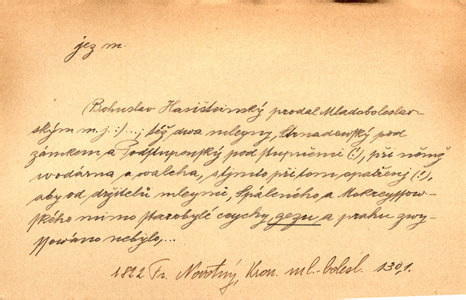 jez m.
(Bohuslav Hasišteinský prodal Mladoboleslav-
ským m. j. :)...; též dwa mlegny, Ssmadovský pod
zámkem a Podstupenský pod stupněmi (!), při němž
wodárna a walcha, s tjmto přitom opatřenj (!),
aby od držitelů mlegnů, Spáleného a Mokregssow-
ského mimo starobylé cegchy, gezu a prahu zwy-
ssowáno nebylo,...
1822 Fr. Novotný, Kron. ml.-bolesl. 130,1.